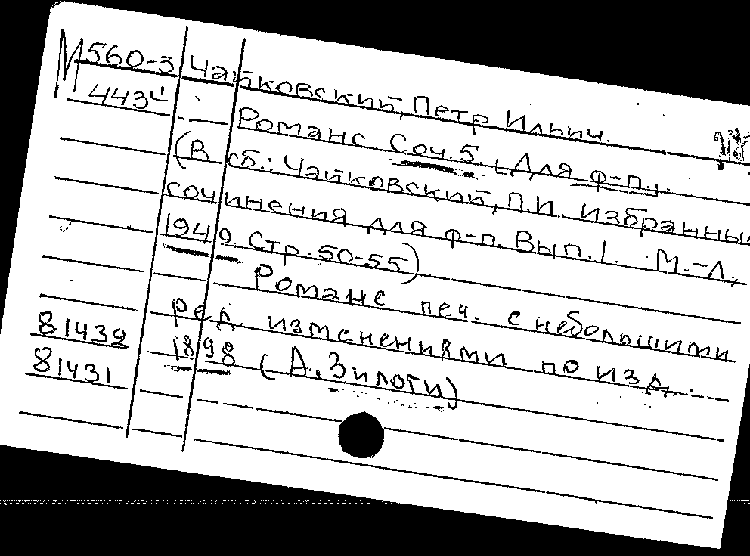 М560-3 Чайковский, Петр Ильич.
443ч Романс Соч. 5. [Для ф-п].
(В сб.: Чайковский, П.И. Избранные
сочинения для ф-п. Вып. I. М.-Л.,
1949 Стр. 50-55)
Романс печ. с небольшими
ред. изменениями по изд.
81432 1898 (А. Зилоти)
81431